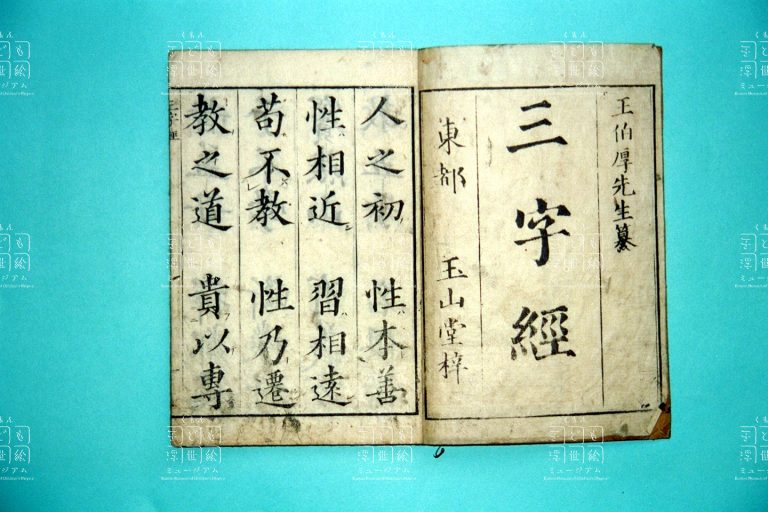 王伯厚先生纂
三字經
東都 玉山堂梓
人之初 性本善
性相近 習相遠
苟不教 性乃遷
教之道 貴以專
三字經
くもん
子ども
浮世絵
ミュージアム